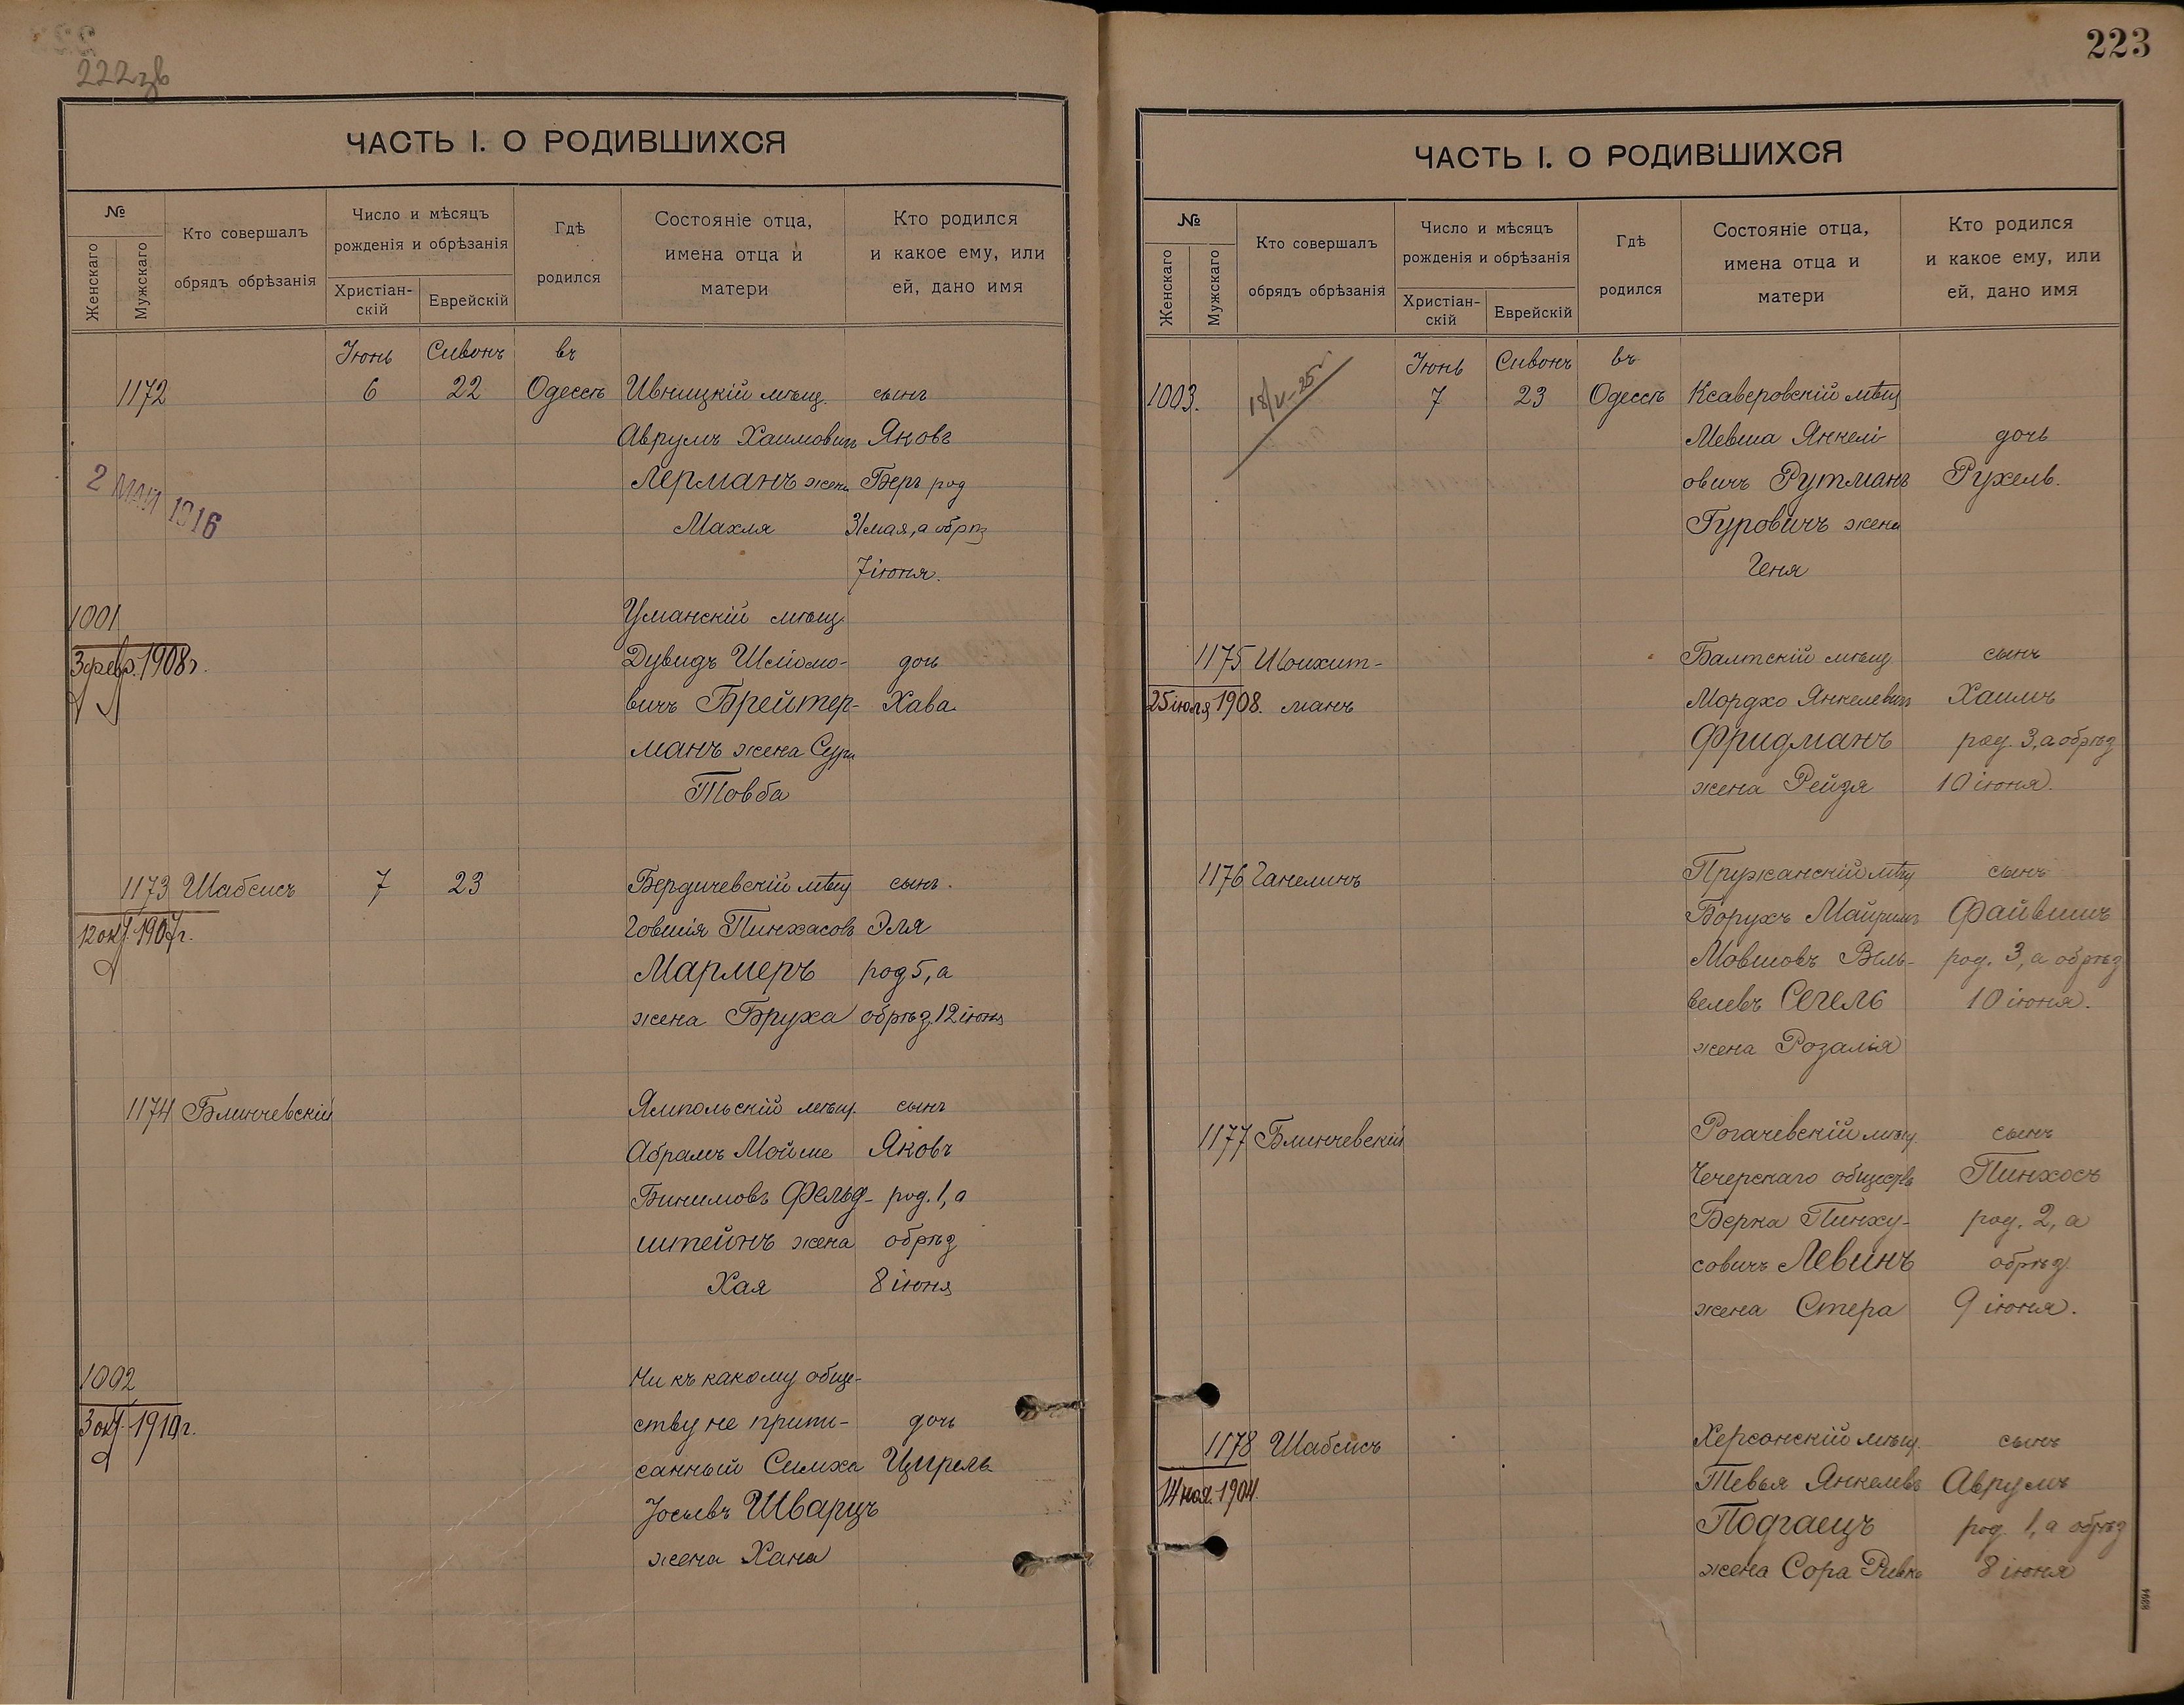 222 зв
ЧАСТЬ I. О РОДИВШИХСЯ
№
Женскаго
Мужскаго
Кто совершалъ
обрядъ обрѣзанія
Число и мѣсяцъ
рожденія и обрѣзанія
Христіан-
скій
Еврейскій
Гдѣ
родился
Состояніе отца,
имена отца и
матери
Кто родился
и какое ему, или
ей, дано имя
Іюнь Сивонъ въ
1172 6 22 Одессѣ Ивницкій мѣщ. сынъ
Аврумъ Хаимовичъ Яковъ
Лерманъ жена Беръ род
Махля 31 мая, а обрѣз
7 іюня.
2 МАЯ 1916
1001 Уманскій мѣщ.
3 февр. 1908 г. Дувидъ Шлёмо- дочь
вичъ Брейтер- Хава.
манъ жена Сура
Товба
1173 Шабсисъ 7 23 Бердичевскій мѣщ сынъ.
12 окт. 1907 г. Говшія Пинхасовъ Эля
Мармеръ род 5, а
жена Бруха обрѣз. 12 іюня
1174 Блинчевскій Ямпольскій мѣщ. сынъ
Абрамъ Мойше Яковъ
Бинимовъ Фельд- род. 1, а
штейнъ жена обрѣз
Хая 8 іюня
1002 Ни къ какому обще-
3 окт. 1910 г. ству не припи- дочь
санный Симха Ципрель
Іосьевъ Шварцъ
жена Хана
223
ЧАСТЬ I. О РОДИВШИХСЯ
№
Женскаго
Мужскаго
Кто совершалъ
обрядъ обрѣзанія
Число и мѣсяцъ
рожденія и обрѣзанія
Христіан-
скій
Еврейскій
Гдѣ
родился
Состояніе отца,
имена отца и
матери
Кто родился
и какое ему, или
ей, дано имя
Іюнь Сивонъ въ
1003. 18/V-25 7 23 Одессѣ Ксаверовскій мѣщ
Мевша Янкелі- дочь
овичъ Рутманъ Рухель.
Гуровичъ жена
Геня
1175 Шоихит- Балтскій мѣщ сынъ
25 іюля 1908. манъ Мордхо Янкелевичъ Хаимъ
Фридманъ род. 3, а обрѣз
жена Рейзя 10 іюня.
1176 Ганелинъ Пружанскій мѣщ сынъ
Борухъ Майримъ Файвишъ
Мовшовъ Вель- род. 3, а обрѣз
велевъ Сегель 10 іюня.
жена Розалія
1177 Блинчевскій Рогачевскій мѣщ. сынъ
Чечерскаго обществ Пинхосъ
Берка Пинху- род. 2, а
совичъ Левинъ обрѣз
жена Стера 9 іюня.
1178 Шабсисъ Херсонскій мѣщ. сынъ
14 ноя. 1904. Тевья Янкелевъ Аврумъ
Подгаецъ род. 1, а обрѣз
жена Сора Ривка 8 іюня